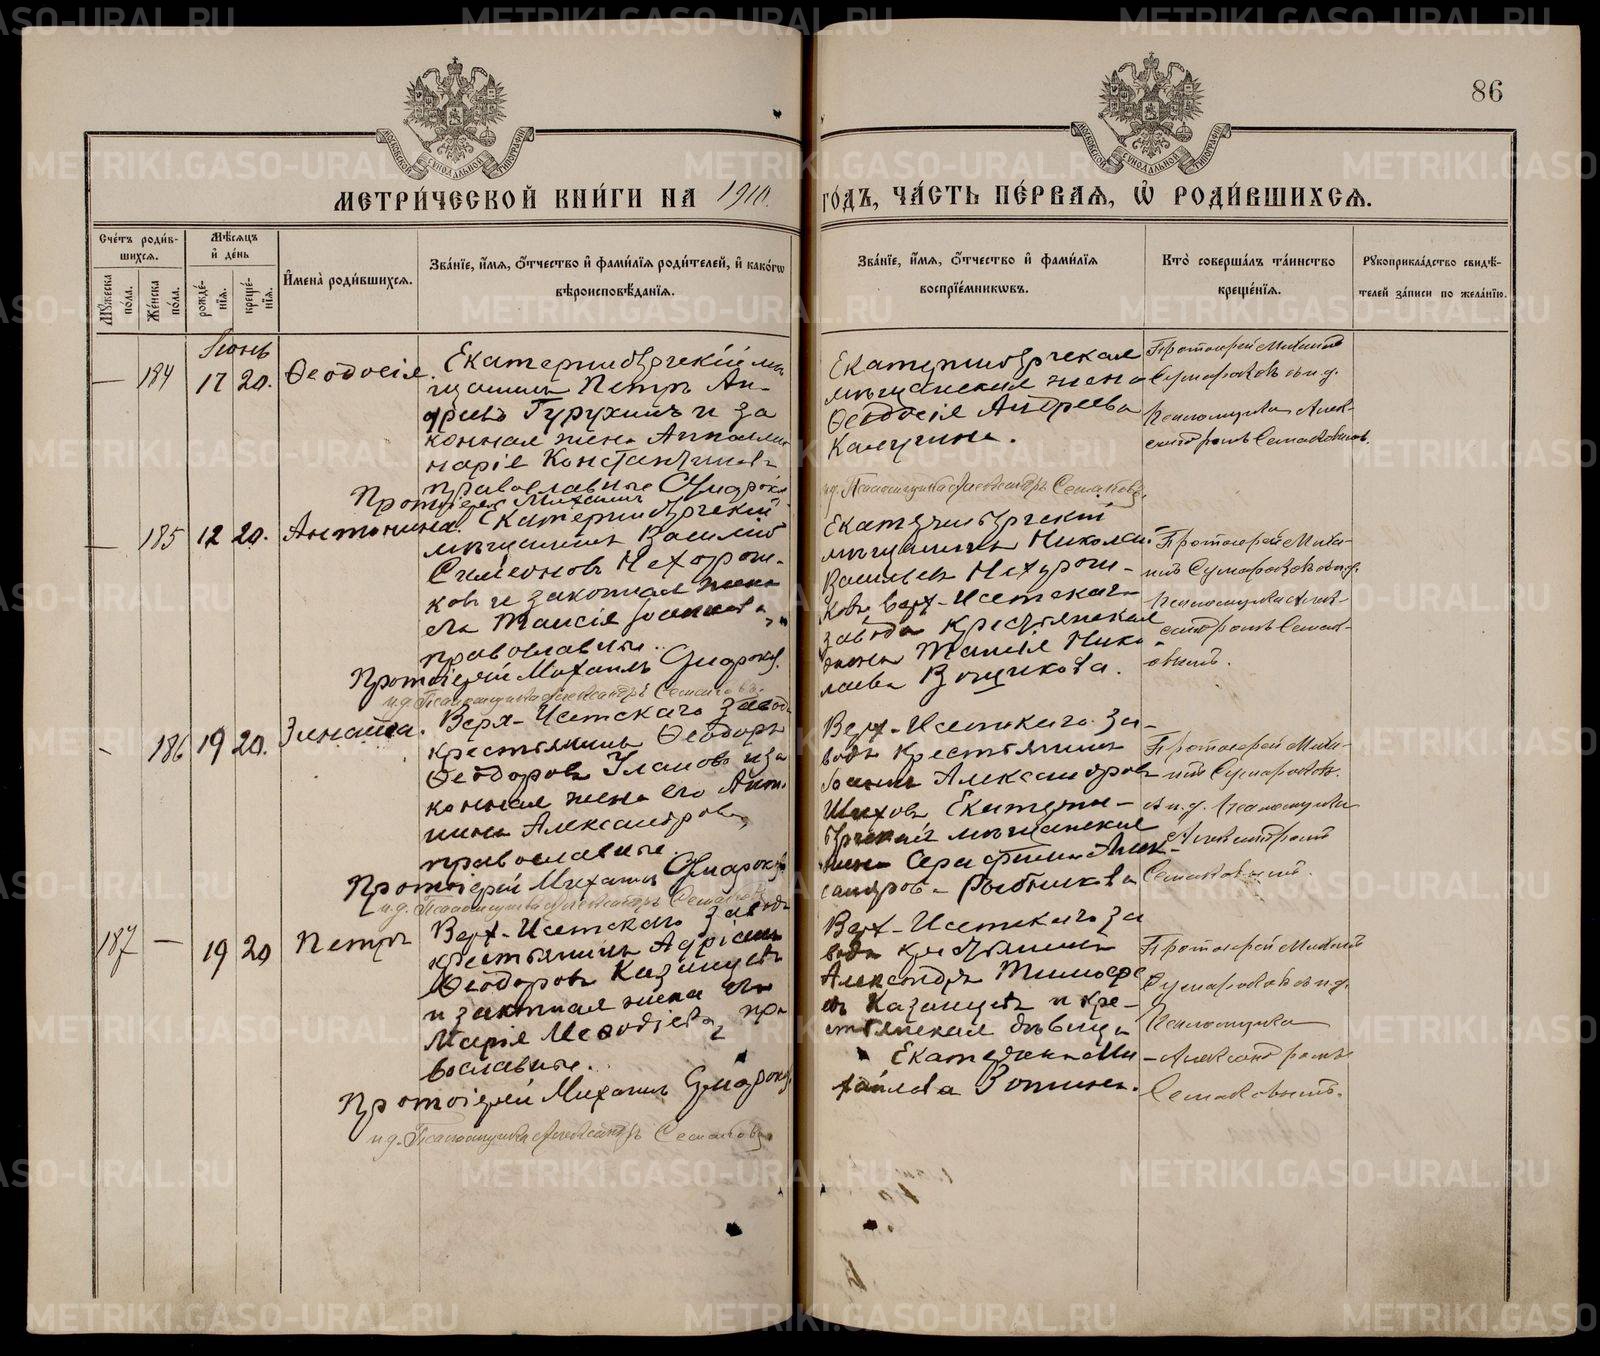 86
МОСКОВСКОЙ СѴНОДАЛЬНОЙ ТИПОГРАФІИ
МОСКОВСКОЙ СѴНОДАЛЬНОЙ ТИПОГРАФІИ
МЕТРИ́ЧЕСКОЙ КНИ́ГИ НА 1910 ГО́ДЪ, ЧА́СТЬ ПЕ́РВАЯ, Ѡ҆ РОДИ́ВШИХСЯ.
Сче́тъ роди́в-
шихся.
Мꙋ́жеска по́ла.
Же́нска по́ла.
Мѣ́сяцъ и҆ де́нь
рожде́-
нїя.
креще́-
нїя.
И҆мена̀ роди́вшихся.
Зва́нїе, и҆́мя, ѻ҆́тчество и҆ фами́лїя роди́телей, и҆ како́гѡ
вѣроисповѣ́данїя.
Зва́нїе, и҆́мя, ѻ҆́тчество и҆ фами́лїя
воспрїе́мникѡвъ.
Кто̀ соверша́лъ та́инство
креще́нїя.
Рꙋкоприкла́дство свидѣ́-
телей за́писи по жела́нїю.
Іюнь
— 184 17 20. Ѳеодосія.
Екатеринбургскій мѣ
щанинъ Петръ Ан-
дреевъ Гурухинъ и за
конная жена Апполли
нарія Константинова
православные
Протоіерей Михаилъ
Екатеринбургская
мѣщанская жена
Ѳеодосія Андреева
Калугина.
Протоіерей Михаилъ
Сумароковъ съ и.д.
Псаломщика Алек-
сандромъ Семаковымъ.
и.д. Псаломщика Александръ Семаковъ.
— 185 12 20. Антонина.
Екатеринбургскій
мѣщанинъ Василій
Симеоновъ Нехорош-
ковъ и законная жена
его Таисія Іоаннова,
православные.
Протоіерей Михаилъ Сумароковъ
и.д. Псаломщика Александръ Семаковъ.
Екатеринбургскій
мѣщанинъ Николай
Васильевъ Нехорош-
ковъ, Верх-Исетскаго
завода крестьянская
жена Таисія Нико-
лаева
Протоіерей Миха-
илъ Сумароковъ съ и.д.
Псаломщика Алек-
сандромъ Семак-
овымъ.
- 186 19 20. Зинаида.
Верх-Исетскаго завода
крестьянинъ Ѳеодоръ
Ѳеодоровъ Улановъ и за
конная жена его Анто
нина Александрова,
православные.
Протоіерей Михаилъ Сумароковъ
и.д. Псаломщика Александръ Семаковъ
Верх-Исетскаго за-
вода крестьянинъ
Іоаннъ Александровъ
Шиховъ, Екатерин-
бургская мѣщанская
жена Серафима Алек-
сандрова Рыбникова
Протоіерей Миха-
илъ Сумароковъ
съ и.д. Псаломщика
Александромъ
Семаковымъ.
187 — 19 20 Петръ
Верх-Исетскаго завода
крестьянинъ Адріанъ
Ѳеодоровъ Казанцевъ
и законная жена его
Марія Меѳодіева, пра
вославные.
Протоіерей Михаилъ Сумароковъ
и.д. Псаломщика Александръ Семаковъ
Верх-Исетскаго за
вода крестьянинъ
Александръ Тимофе
евъ Казанцевъ и кре-
стьянская дѣвица
Екатерина Ми
хайлова Зотина.
Протоіерей Михаилъ
Сумароковъ съ и.д.
Псаломщика
Александромъ
Семаковымъ.
METRIKI.GASO-URAL.RU